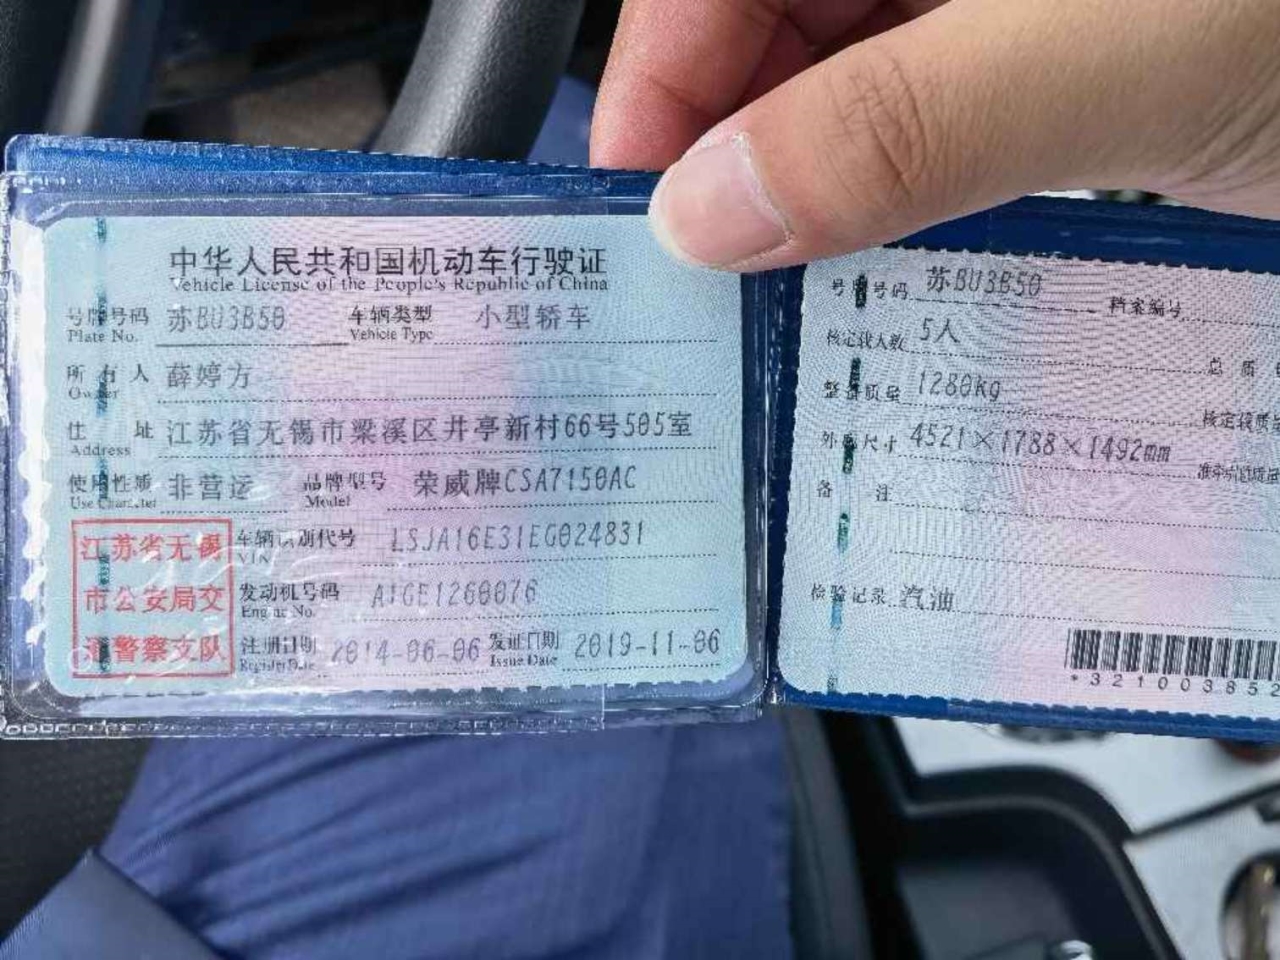 中华人民共和国机动车行驶证
Vehicle License of the People's Republic of China
号牌号码 苏BU3B50 车辆类型 小型轿车
Plate No. Vehicle Type
所有人 薛婷方
Owner
住址 江苏省无锡市梁溪区井亭新村66号505室
Address
使用性质 非营运 品牌型号 荣威牌CSA7150AC
Use Character Model
江苏省无锡
市公安局交
通警察支队
车辆识别代号 LSJA16E31EG024831
VIN
发动机号码 A1GE1260076
Engine No.
注册日期 2014-06-06 发证日期 2019-11-06
Register Date Issue Date
号牌号码 苏BU3B50 档案编号
核定载人数 5人 总质
整备质量 1280kg 核定载质
外廓尺寸 4521×1788×1492mm 准牵引总质
备注
检验记录 汽油
*321003852